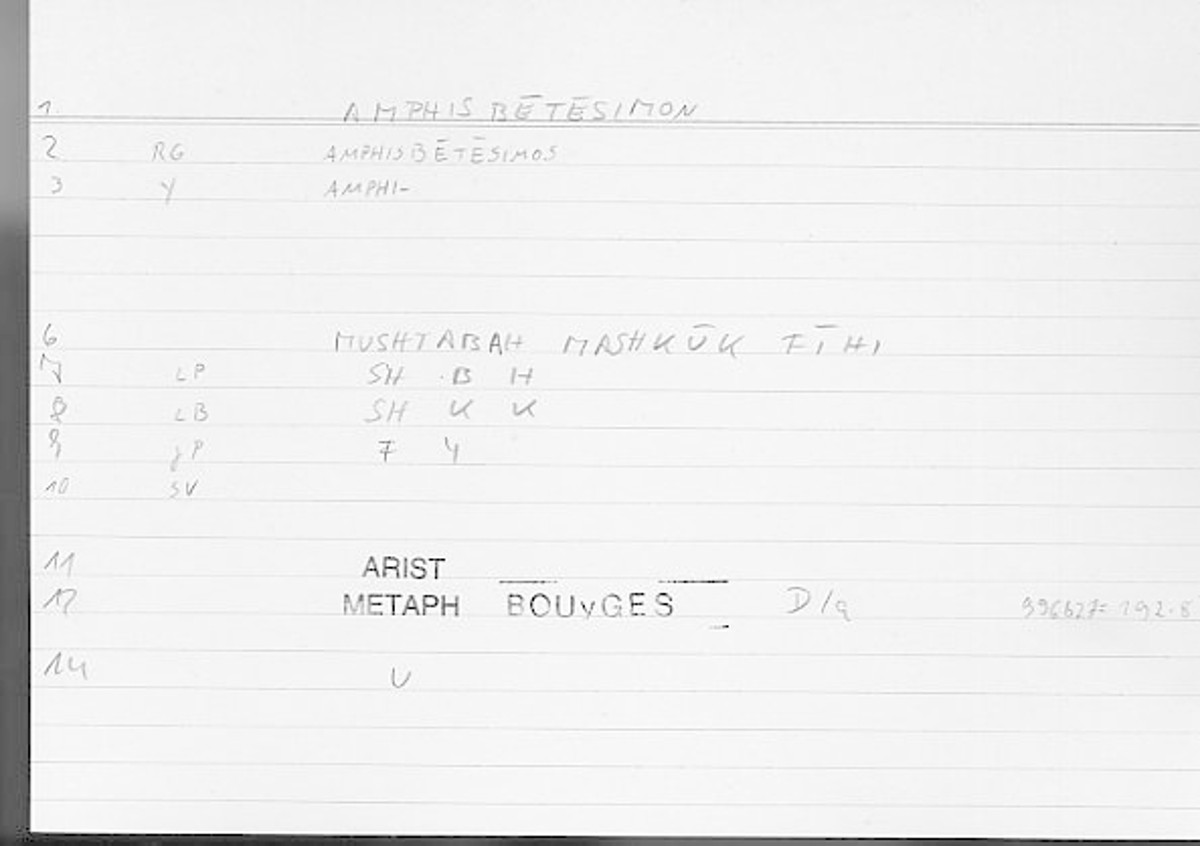 1. AMPHISBĒTĒSIMON
2 RG AMPHISBĒTĒSIMOS
3 Y AMPHI-
6 MUSHTABAH MASHKŪK FĪHI
7 LP SH B H
8 LB SH K K
9 JP F Y
10 SV
11 ARIST
12 METAPH BOUYGES D/q 996b27= 192.8
14 U